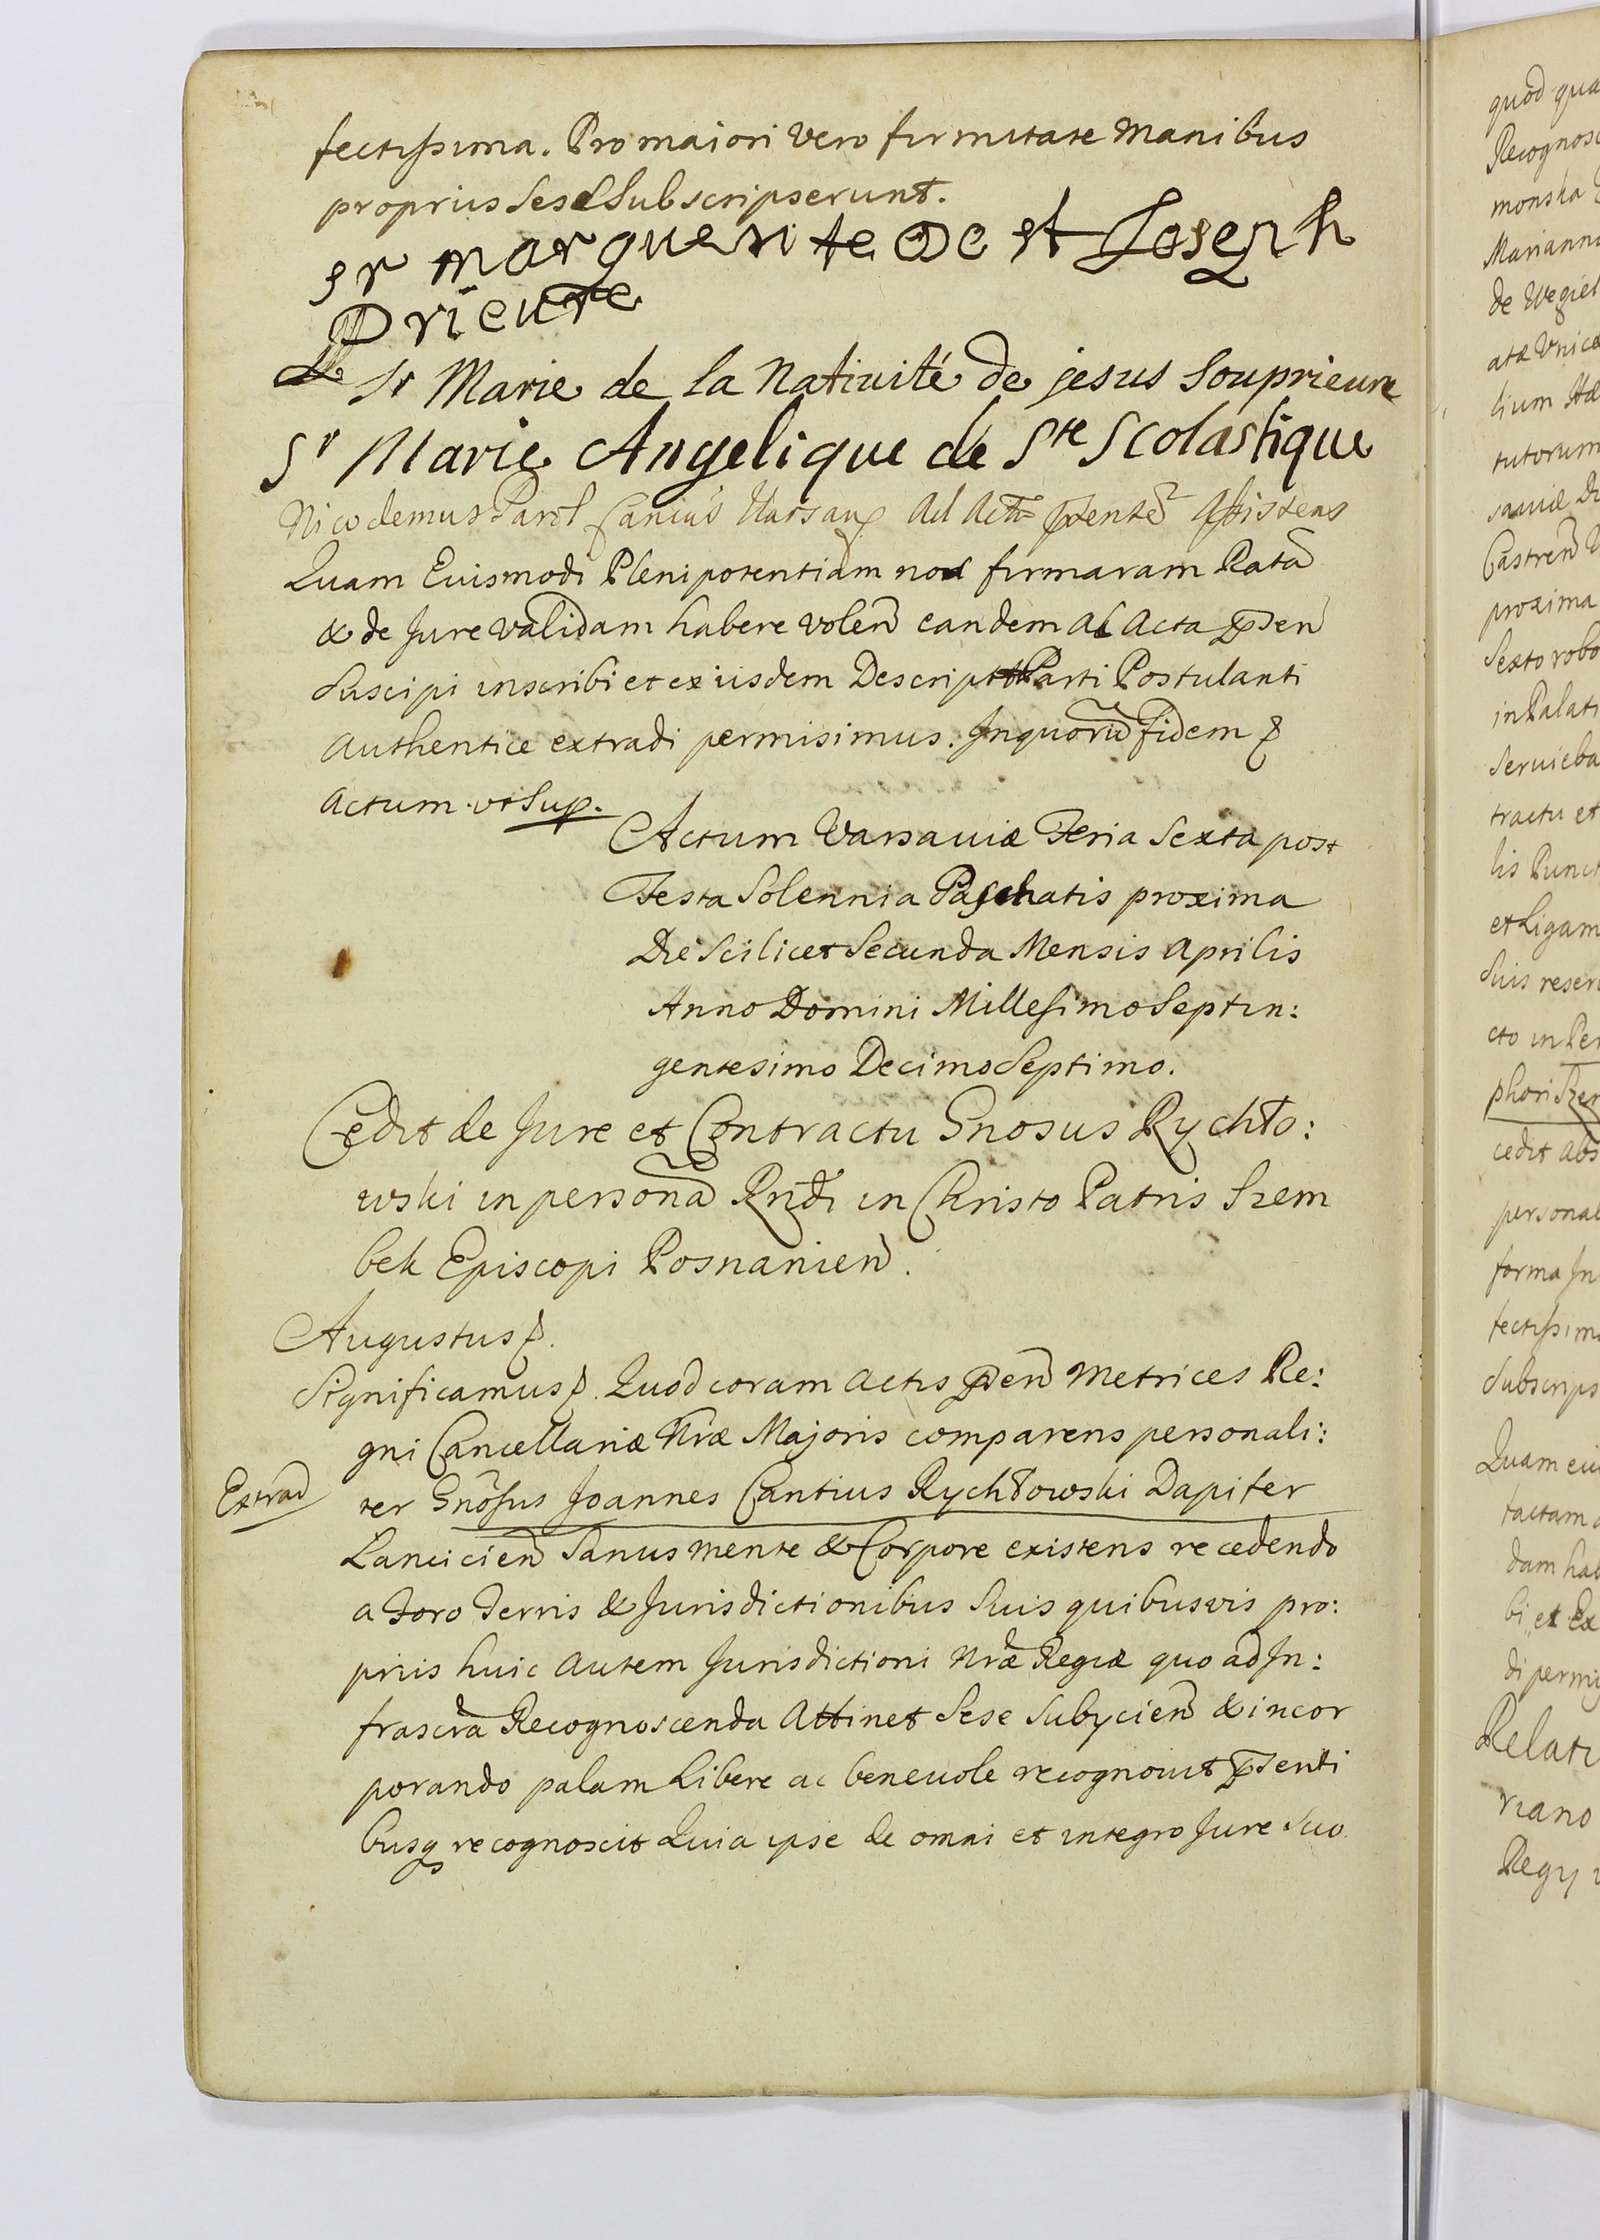 fectissima. Pro maiori vero firmitate Manibus
proprijs Sese Subscripserunt.
sr marguerite De st Joseph
Prieure
Sr Marie de la Natiuité de jesus Souprieure
Sr Marie Angelique de Ste Scolastique
Nicodemus Parol Varsav Ad Act Assistens
Quam Euismodi Plenipotentiam nos firmatam Rata
& de Jure validam habere volen eandem ad Acta pnten
Suscipi inscribi et ex iisdem Descript Parti Postulanti
Authentice extradi permisimus. In quoru fidem
Actum ut Sup.
Actum Varsaviæ Feria Sexta post
Festa Solennia Paschatis proxima
Die Scilicet Secunda Mensis Aprilis
Anno Domini Millesimo Septin:
gentesimo Decimo Septimo.
Cedit de Jure et Contractu Gnosus Rychło:
wski in persona Rndi in Christo Patris Szem
bek Episcopi Posnanien.
Augustus
Significamus Quod coram Actis pnten Metrices Re:
gni Cancellariæ Nræ Majoris comparens personali:
Extrad
ter Gnosus Joannes Cantius Rychłowski Dapifer
Lancicien Sanus mente & Corpore existens recedendo
a Foro Terris & Jurisdictionibus Suis quibusvis pro:
priis huic Autem Jurisdictioni Nræ Regiæ quo ad In:
frascra Recognoscenda Attinet Sese Subycien & incor
porando palam Libere ac beneuole recognouit pntenti
busq recognoscit Quia ipse de omni et integro Jure Suo
quod qua
Recognosc
monska
Marianna
de Wegiel
atæ Unicæ
lium Hæ
tutorum
saviæ Di
Castren
proxima
Sexto robo
in Palati
Seruieba
tractu et
lis Punct
et Ligam
Suis reser
cto in Per
phori Szem
cedit abs
personal
forma In
fectissima
Subscrips
Quam eui
factam
dam hab
bi et Ex
di permi
Relati
riano
Regy